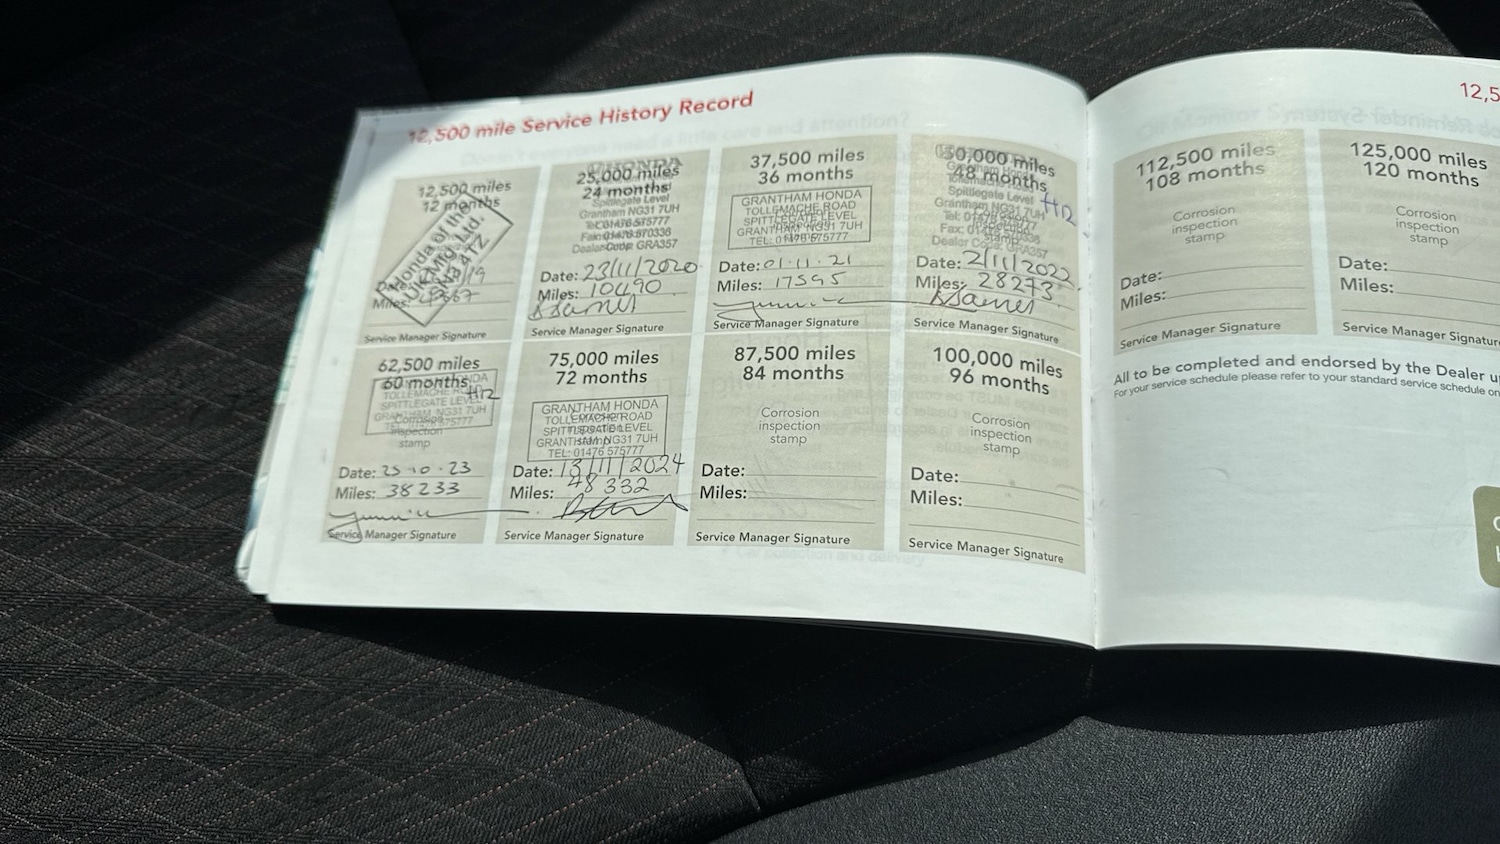 12,500 mile Service History Record
12,500 miles
12 months
Honda of the
UK Mfg Ltd.
Miles:
Service Manager Signature
25,000 miles
24 months
Spittlegate Level
Grantham NG31 7UH
Dealer Code: GRA357
Date: 23/11/2020
Miles: 10490
Service Manager Signature
37,500 miles
36 months
GRANTHAM HONDA
TOLLEMACHE ROAD
SPITTLEGATE LEVEL
GRANTHAM NG31 7UH
TEL: 01476 575777
Date: 01.11.21
Miles: 17595
Service Manager Signature
50,000 miles
48 months
Spittlegate Level
Grantham NG31 7UH
HR
Dealer Code: GRA357
Date: 2/11/2022
Miles: 28273
Service Manager Signature
62,500 miles
60 months
HR
SPITTLEGATE LEVEL
GRANTHAM NG31 7UH
Corrosion
inspection
stamp
Date: 25 10.23
Miles: 38233
Service Manager Signature
75,000 miles
72 months
GRANTHAM HONDA
TOLLEMACHE ROAD
SPITTLEGATE LEVEL
GRANTHAM NG31 7UH
TEL: 01476 575777
Date: 13/11/2024
Miles: 48 332
Service Manager Signature
87,500 miles
84 months
Corrosion
inspection
stamp
Date:
Miles:
Service Manager Signature
100,000 miles
96 months
Corrosion
inspection
stamp
Date:
Miles:
Service Manager Signature
12,5
112,500 miles
108 months
Corrosion
inspection
stamp
Date:
Miles:
Service Manager Signature
125,000 miles
120 months
Corrosion
inspection
stamp
Date:
Miles:
Service Manager Signature
All to be completed and endorsed by the Dealer
For your service schedule please refer to your standard service schedule on